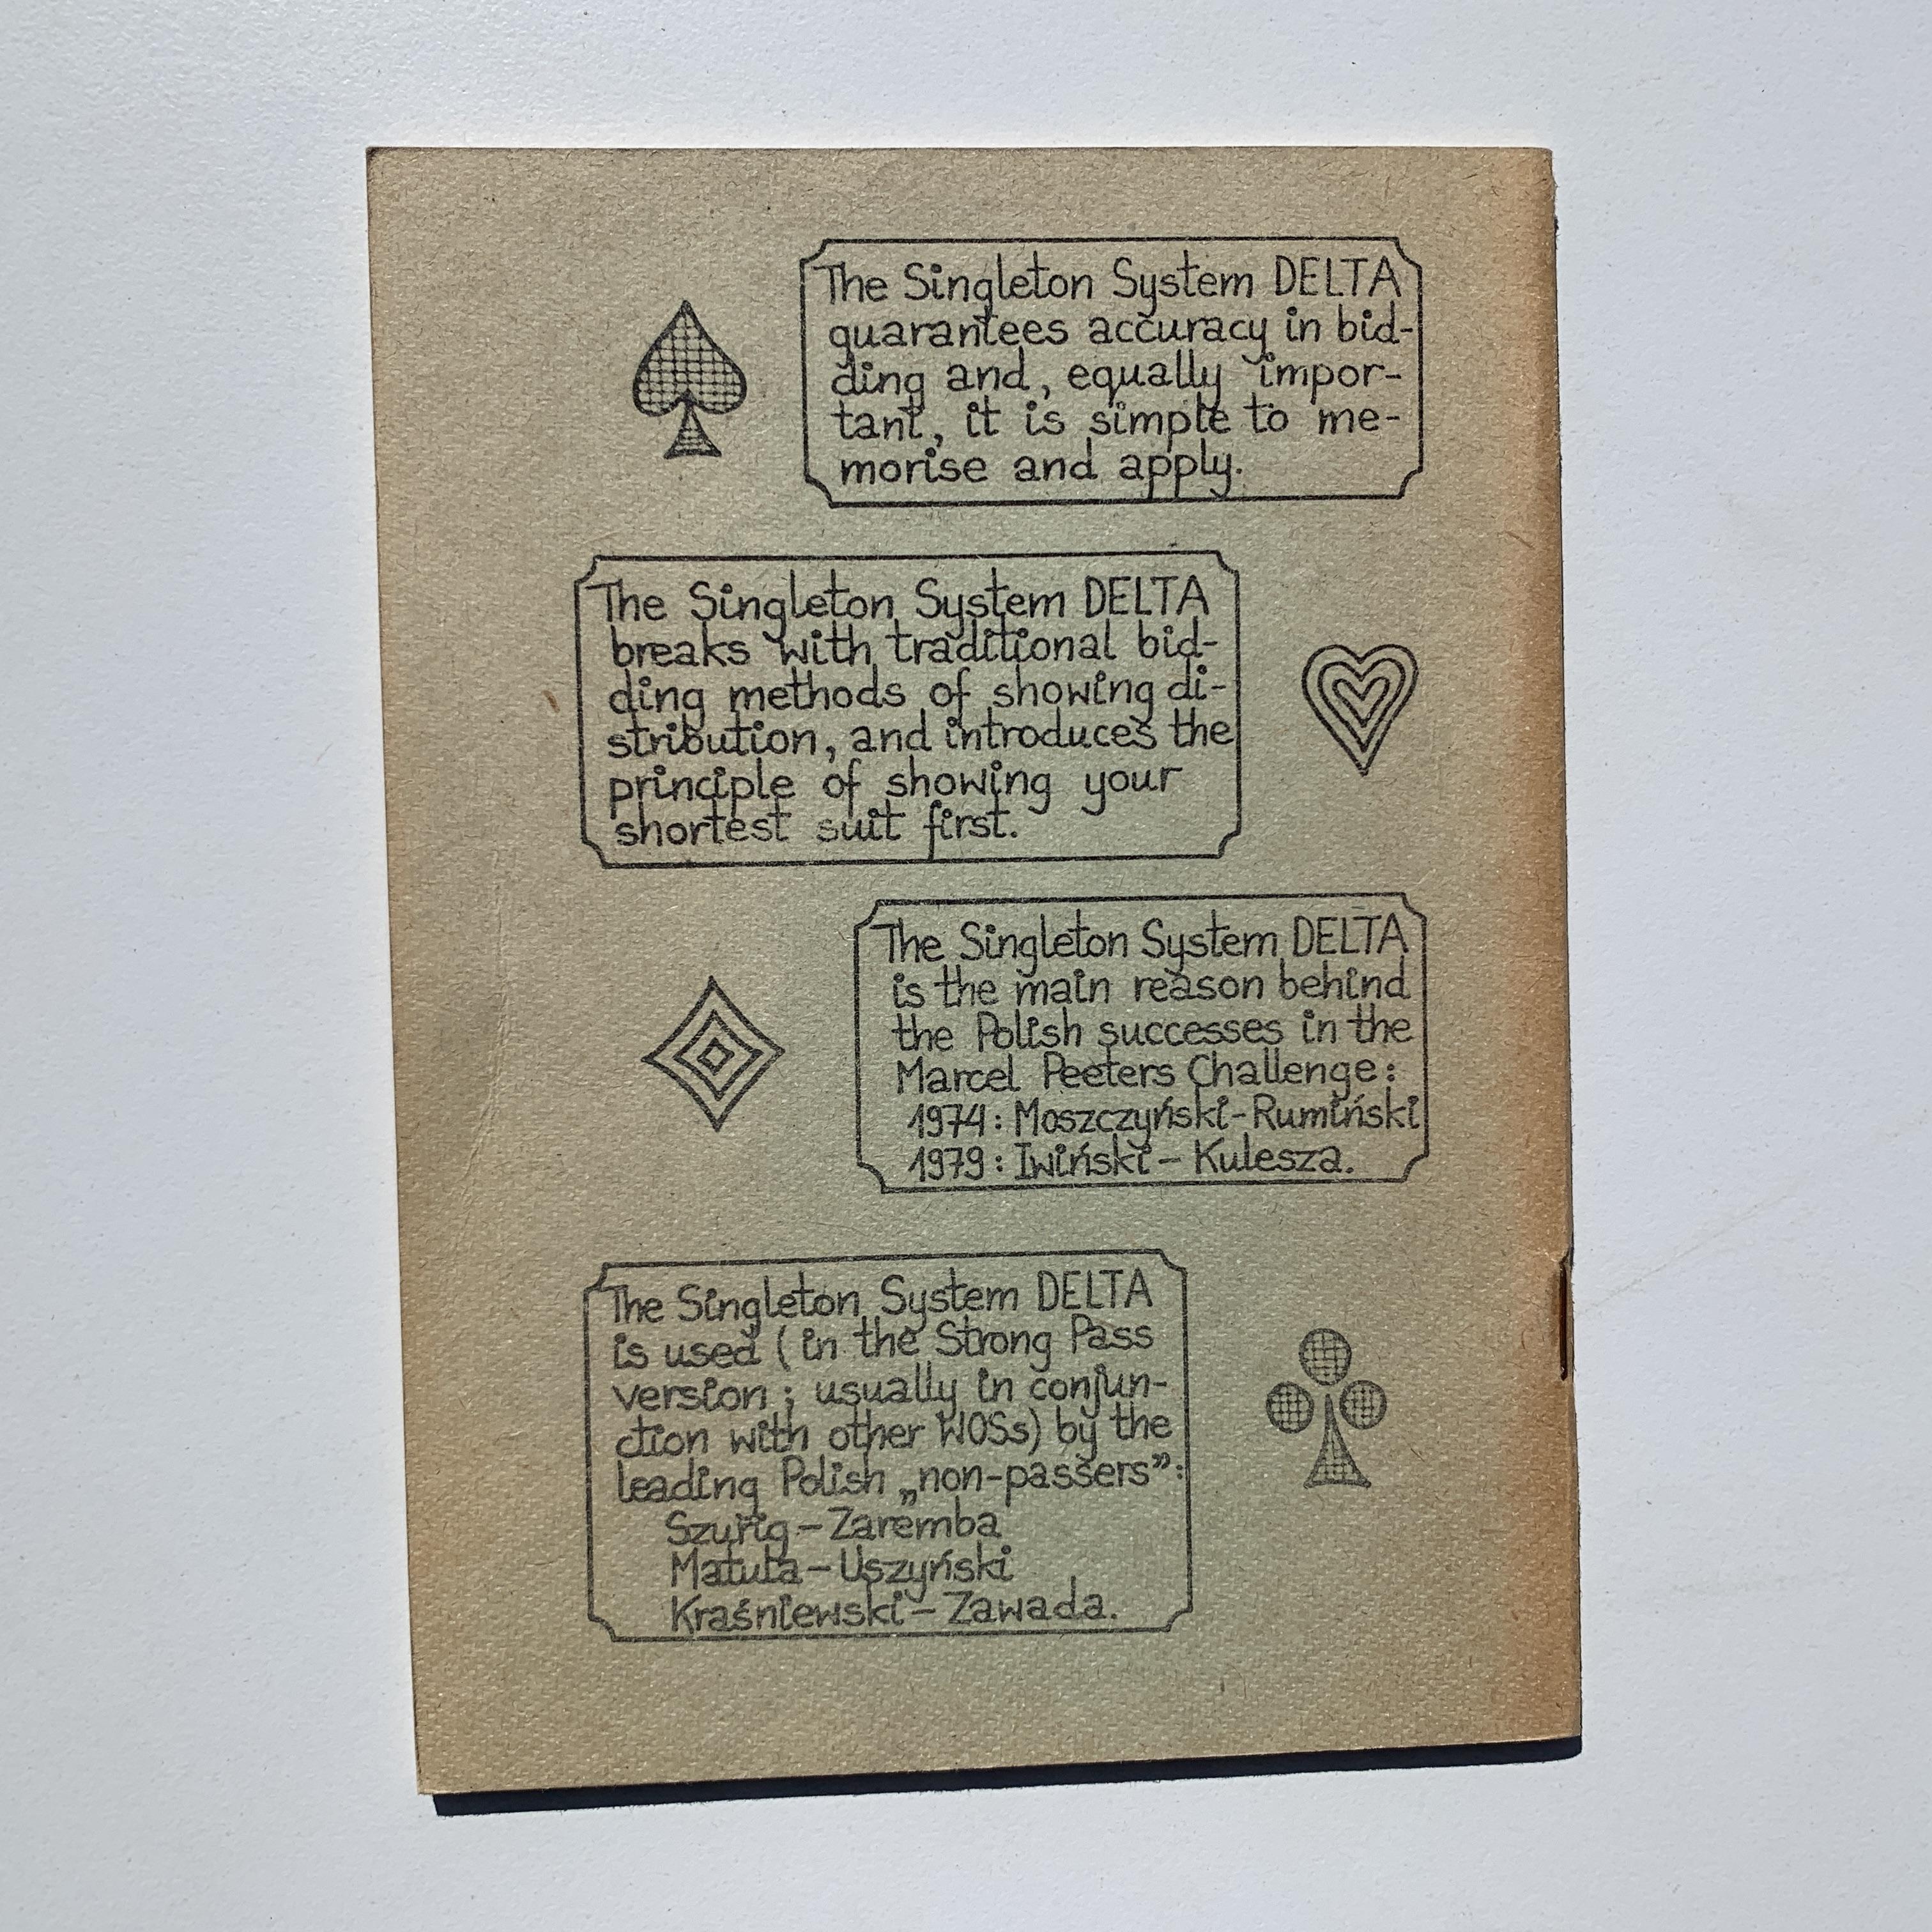 The Singleton System DELTA
guarantees accuracy in bid-
ding and, equally impor-
tant, it is simple to me-
morise and apply.
The Singleton System DELTA
breaks with traditional bid-
ding methods of showing di-
stribution, and introduces the
principle of showing your
shortest suit first.
The Singleton System DELTA
is the main reason behind
the Polish successes in the
Marcel Peeters Challenge:
1974: Moszczyński-Rumiński
1979: Iwiński - Kulesza.
The Singleton System DELTA
is used (in the Strong Pass
version; usually in conjun-
ction with other WOSs) by the
leading Polish „non-passers”:
Szurig - Zaremba
Matuła - Uszyński
Kraśniewski - Zawada.